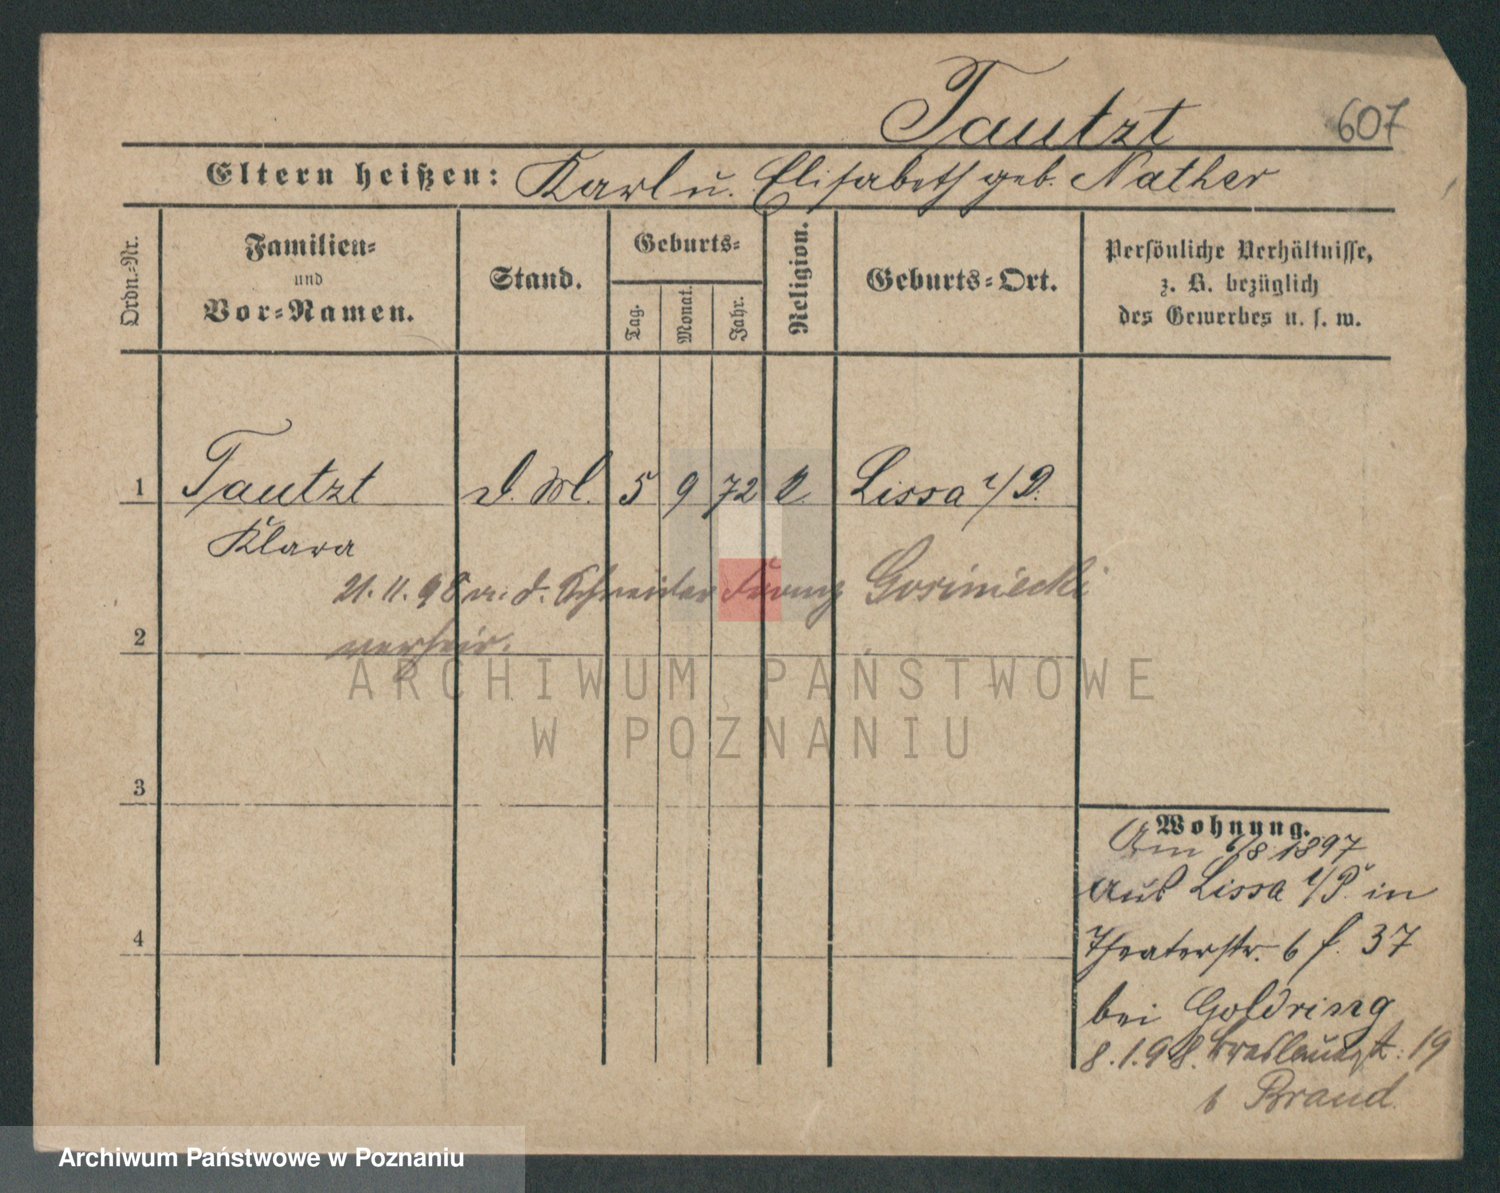 Tautzt 607
Eltern heißen: Karl u. Elisabeth geb. Nather
Ordn.-Nr.
Familien-
und
Vor-Namen.
Stand.
Geburts-
Tag.
Monat.
Jahr.
Religion.
Geburts-Ort.
Persönliche Verhältnisse,
z. B. bezüglich
des Gewerbes u. s. w.
1 Tautzt d. M. 5 9 72 Lissa i/P.
Klara
21.11.98 m. d. Schneider Franz Gosiniecki
2 verheir.
ARCHIWUM PAŃSTWOWE
W POZNANIU
3
4
Wohnung.
Am 6/8 1897
aus Lissa i/P. in
Theaterstr. 6 f. 37
bei Goldring
8.1.98. 19
b Brand
Archiwum Państwowe w Poznaniu